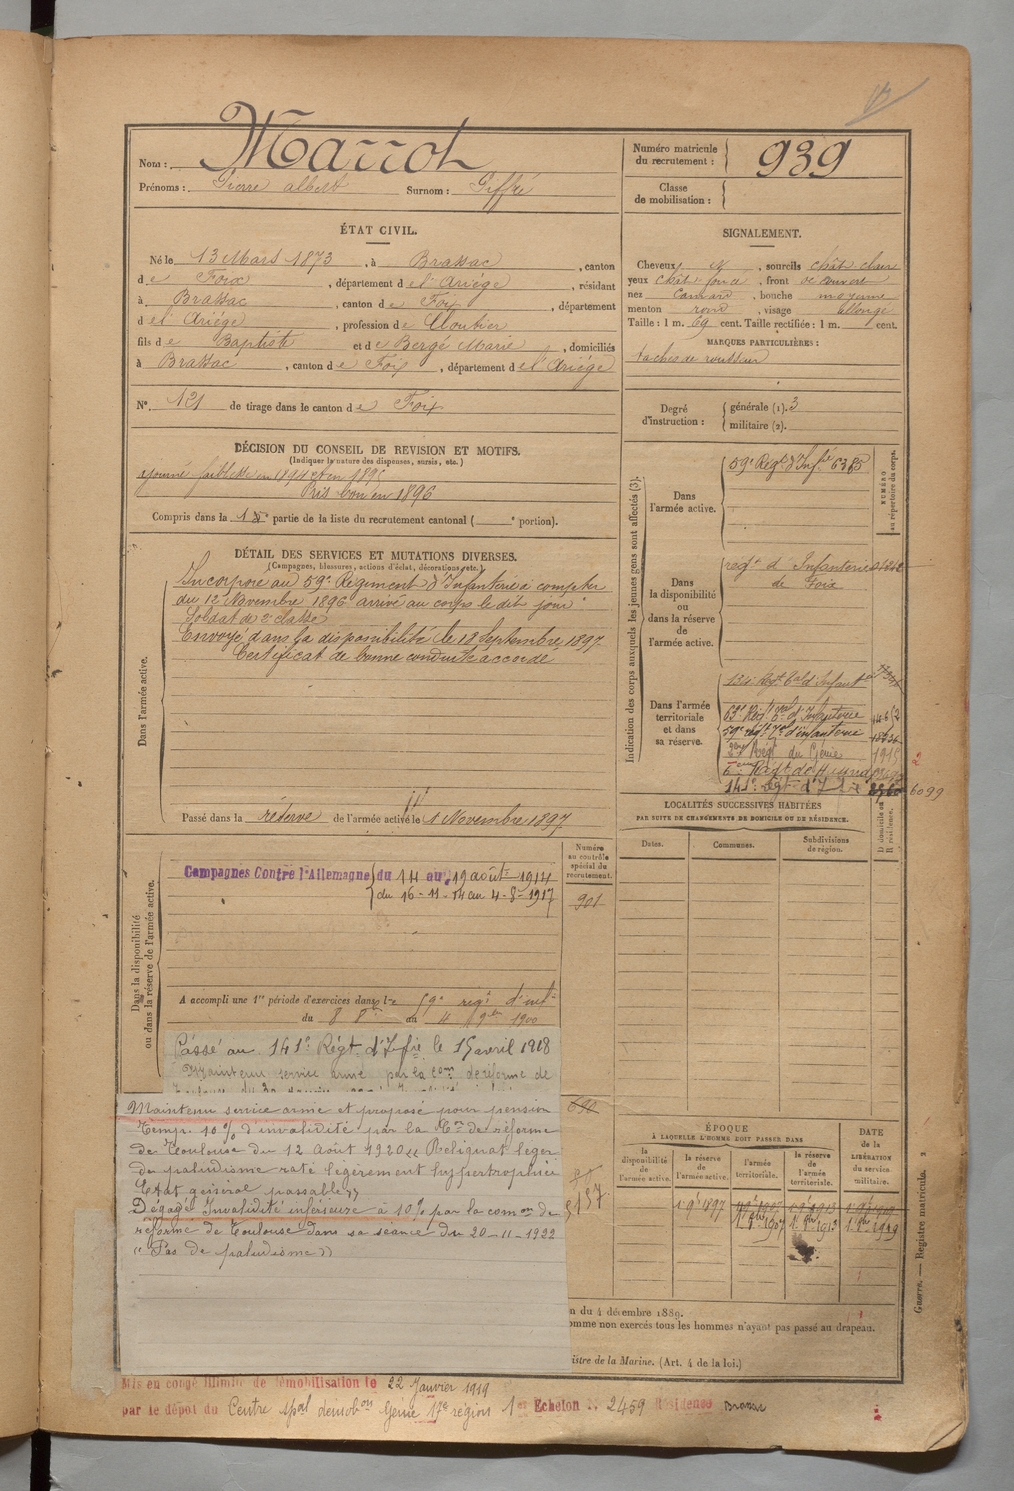 Nom : Marrot
Prénoms : Pierre albert Surnom : Piffré
Numéro matricule du recrutement : 939
Classe de mobilisation :
ÉTAT CIVIL.
Né le 13 Mars 1873, à Brassac, canton
de Foix, département de l'Ariége, résidant
à Brassac, canton de Foix, département
de l'Ariége, profession de Cloutier
fils de Baptiste et de Bergé Marie, domiciliés
à Brassac, canton de Foix, département de l'Ariége
N° 121 de tirage dans le canton de Foix
SIGNALEMENT.
Cheveux N, sourcils chât. clair
yeux chât. foncé, front découvert
nez Camard, bouche moyenne
menton rond, visage allongé
Taille : 1 m. 69 cent. Taille rectifiée : 1 m. cent.
MARQUES PARTICULIÈRES :
taches de rousseur
Degré d'instruction : générale (1). 3
militaire (2).
DÉCISION DU CONSEIL DE REVISION ET MOTIFS.
(Indiquer la nature des dispenses, sursis, etc.)
Ajourné faiblesse en 1894 et en 1895
Pris bon en 1896
Compris dans la 1e partie de la liste du recrutement cantonal ( e portion).
DÉTAIL DES SERVICES ET MUTATIONS DIVERSES.
(Campagnes, blessures, actions d'éclat, décorations, etc.)
Dans l'armée active.
Incorporé au 59e Régiment d'Infanterie à compter
du 12 Novembre 1896 arrivé au corps le dit jour
Soldat de 2e classe
Envoyé dans la disponibilité le 18 Septembre 1897
Certificat de bonne conduite accordé
Passé dans la réserve de l'armée active le 1 Novembre 1897
Indication des corps auxquels les jeunes gens sont affectés (3).
NUMÉRO au répertoire du corps.
Dans l'armée active.
59e Régt d'Infie 6385
Dans la disponibilité ou dans la réserve de l'armée active.
régt d'Infanterie
de Foix
Dans l'armée territoriale et dans sa réserve.
134e Régt tal d'Infantie
63e Régt tal d'Infanterie
59e régt d'infanterie
2ème Régt du Génie 1915
141e régt d'Infie 6099
LOCALITÉS SUCCESSIVES HABITÉES
PAR SUITE DE CHANGEMENTS DE DOMICILE OU DE RÉSIDENCE.
Dates. Communes. Subdivisions de région. D domicile ou R résidence.
Dans la disponibilité ou dans la réserve de l'armée active.
Numéro au contrôle spécial du recrutement.
901
Campagnes Contre l'Allemagne du 14 au 19 août 1914
du 16-11-14 au 4-8-1917
A accompli une 1re période d'exercices dans le 59e régt d'infie
du 8 8bre au 4 9bre 1900
Passé au 141e Régt d'Infie le 15 avril 1918
Maintenu service armé par la Com. de réforme de
Maintenu service armé et proposé pour pension
Temp. 10 % d'invalidité par la Con de réforme
de Toulouse du 12 Août 1920 « Reliquat léger
de paludisme rate légèrement hypertrophiée
Etat général passable »
Dégagé Invalidité inférieure à 10 % par la comon de
réforme de Toulouse dans sa séance du 20-11-1922
« Pas de paludisme »
690
137
ÉPOQUE
À LAQUELLE L'HOMME DOIT PASSER DANS
la disponibilité de l'armée active.
la réserve de l'armée active.
l'armée territoriale.
la réserve de l'armée territoriale.
DATE de la LIBÉRATION du service militaire.
1 9bre 1897
1. 8bre 1907
1. 8bre 1913
1. 8bre 1919
n du 4 décembre 1889.
omme non exercés tous les hommes n'ayant pas passé au drapeau.
istre de la Marine. (Art. 4 de la loi.)
Guerre. — Registre matricule. 2
Mis en congé illimité de démobilisation le 22 Janvier 1919
par le dépôt du Centre spal démobon Génie 17e région 1er Echelon N. 2459 Résidence Brassac